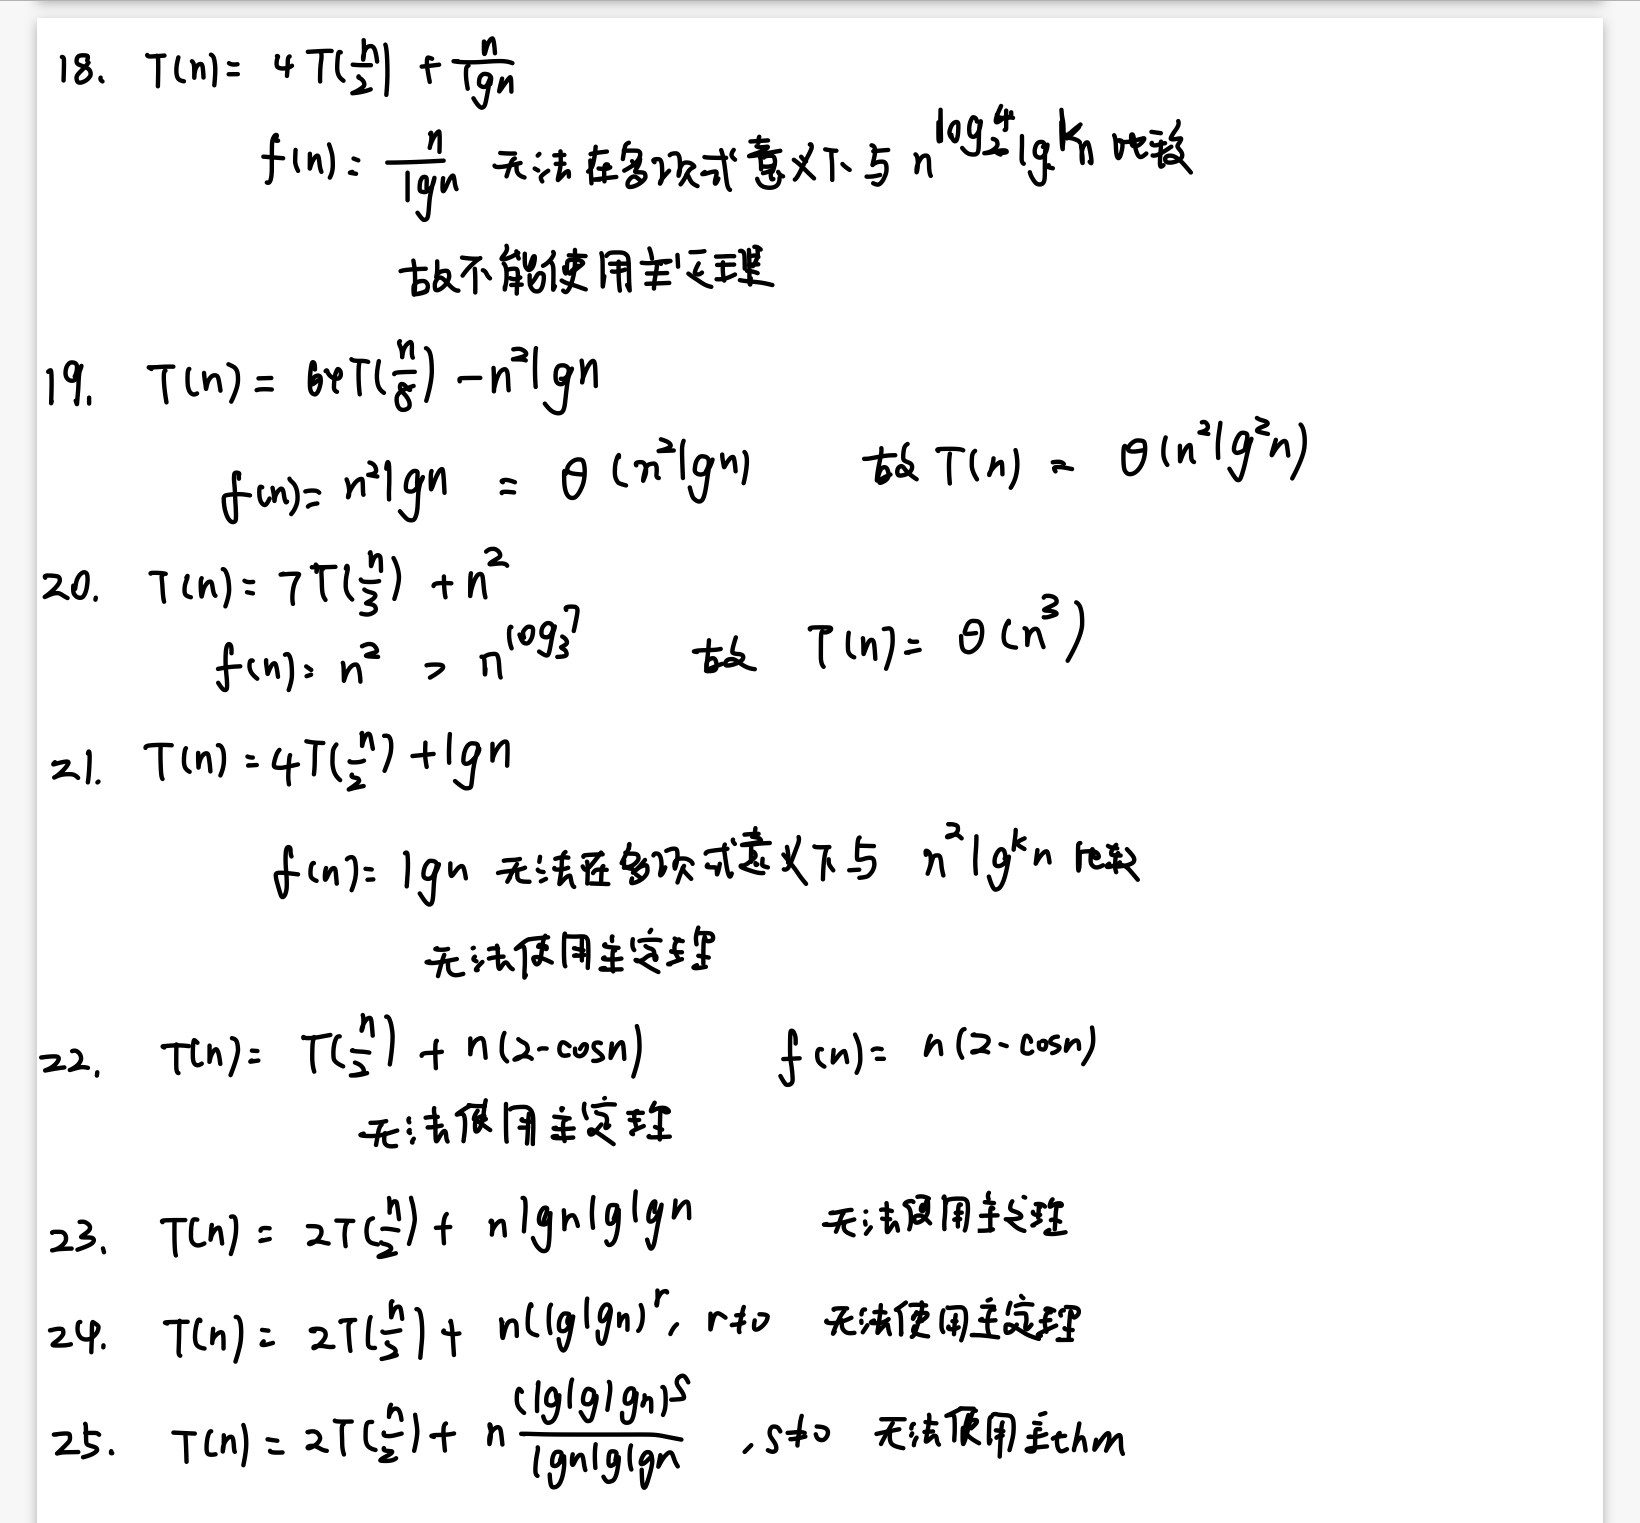 18. T(n) = 4T(n/2) + n/lgn
f(n) = n/lgn 无法在多项式意义下与 n^(log_2 4) lg^k n 比较
故不能使用主定理
19. T(n) = 64T(n/8) - n²lgn
f(n) = n²lgn = θ(n²lgn) 故 T(n) = θ(n²lg²n)
20. T(n) = 7T(n/3) + n²
f(n) = n² > n^(log_3 7) 故 T(n) = θ(n³)
21. T(n) = 4T(n/2) + lgn
f(n) = lgn 无法在多项式意义下与 n²lg^k n 比较
无法使用主定理
22. T(n) = T(n/2) + n(2-cosn) f(n) = n(2-cosn)
无法使用主定理
23. T(n) = 2T(n/2) + nlgnlglgn 无法使用主定理
24. T(n) = 2T(n/2) + n(lglgn)^r, r≠0 无法使用主定理
25. T(n) = 2T(n/2) + n (lglglgn)^s/lgnlglgn , s≠0 无法使用主thm